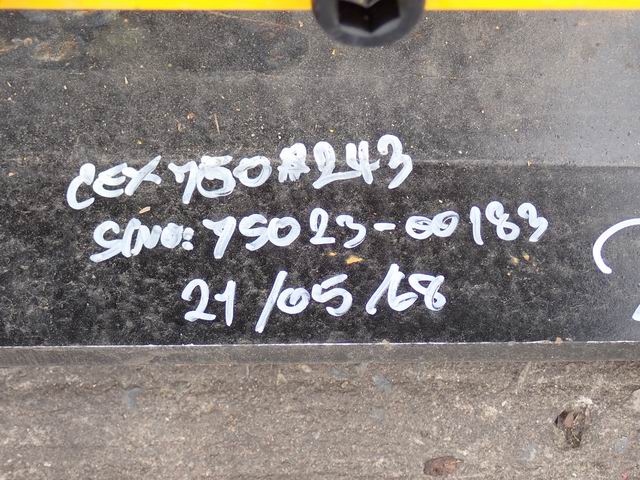 CEX750#243
S/NO: 75023-00183
21/05/68